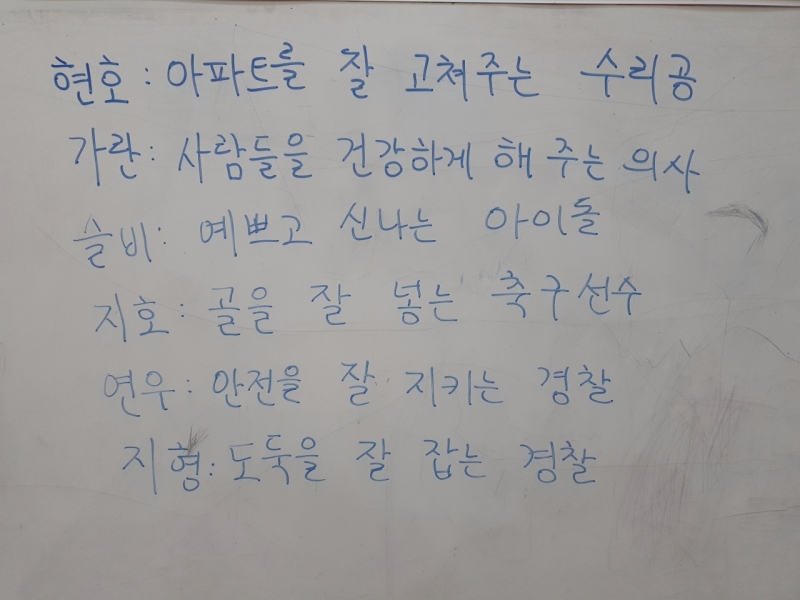 현호: 아파트를 잘 고쳐주는 수리공
가란: 사람들을 건강하게 해 주는 의사
슬비: 예쁘고 신나는 아이돌
지호: 골을 잘 넣는 축구선수
연우: 안전을 잘 지키는 경찰
지형: 도둑을 잘 잡는 경찰